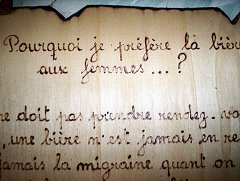 Pourquoi je préfère la bièr
aux femmes ... ?
ne doit pas prendre rendez-vo
, une bière n'est jamais en re
jamais la migraine quant on